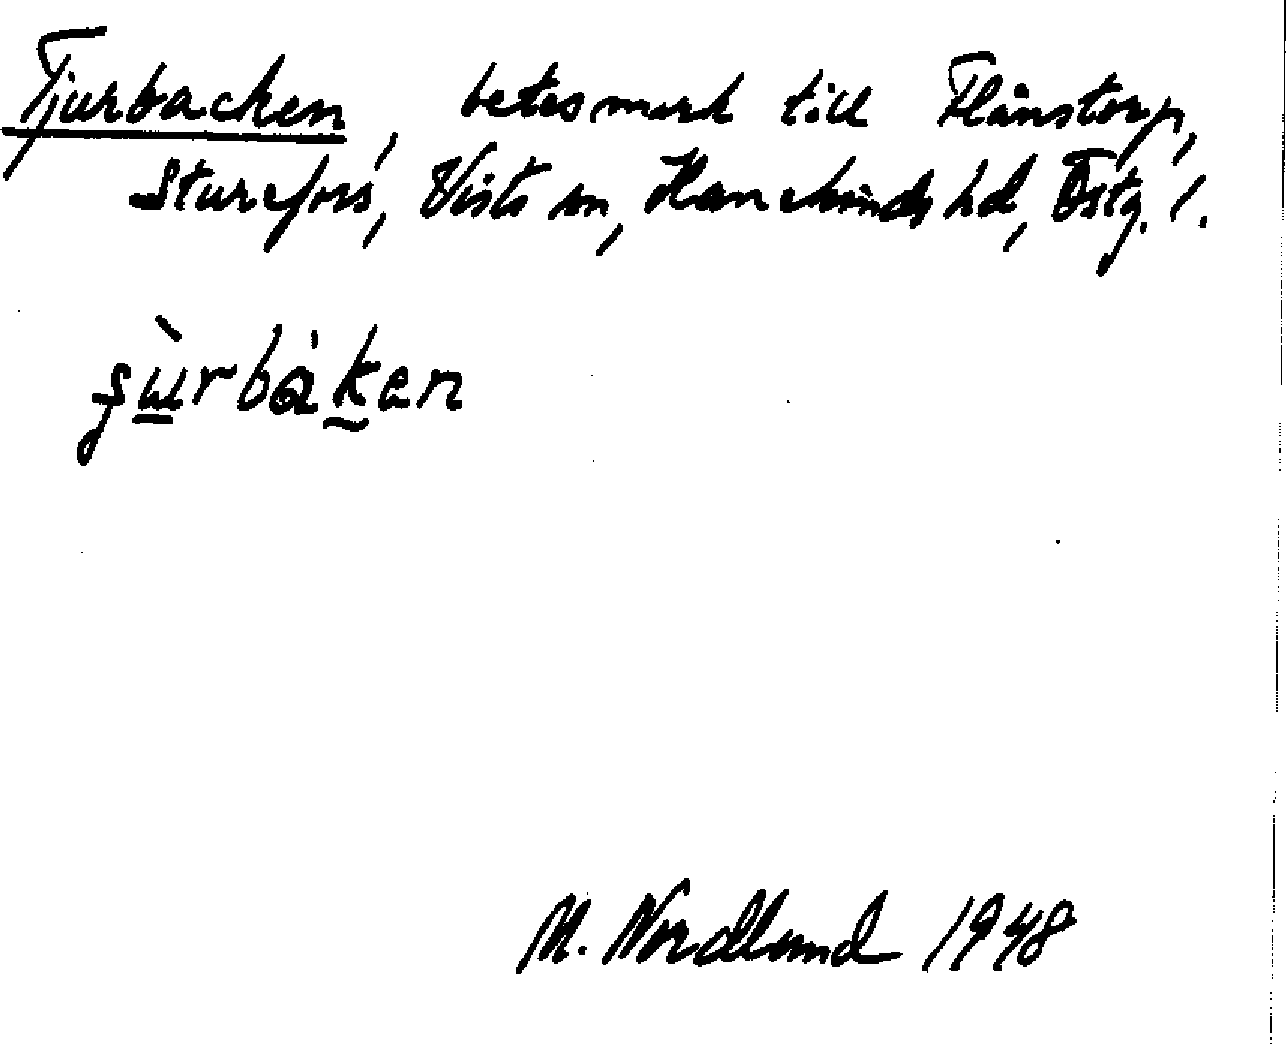 Tjurbacken, betesmark till Flånstorp,
Sturefors, Vists sn, Hanekinds hd, Östg. l.
ʂùrbàken
M. Nordlund 1948